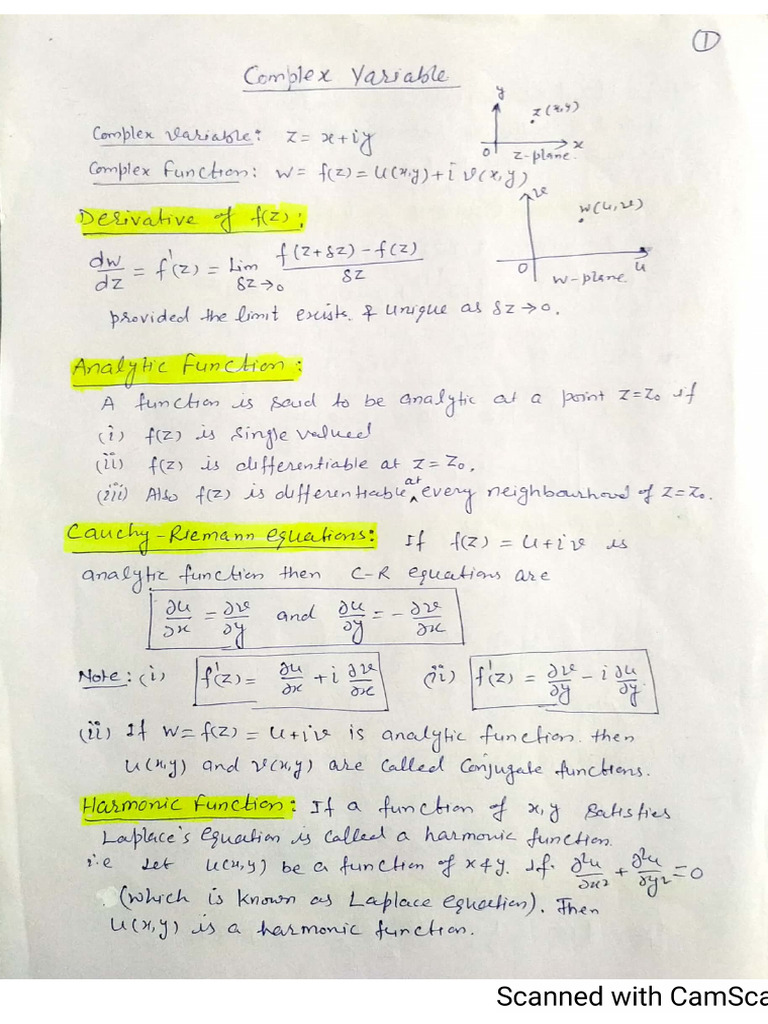 ①
Complex Variable
y
z(x,y)
0
x
z-plane.
Complex Variable: z = x+iy
Complex Function: w = f(z) = u(x,y) + i v(x,y)
v
w(u,v)
0
u
w-plane.
Derivative of f(z):
dw/dz = f'(z) = Lim δz→0 (f(z+δz) - f(z))/δz
provided the limit exists & unique as δz→0.
Analytic Function:
A function is said to be analytic at a point z=z₀ if
(i) f(z) is single valued
(ii) f(z) is differentiable at z=z₀.
(iii) Also f(z) is differentiable at every neighbourhood of z=z₀.
Cauchy-Riemann equations: If f(z) = u+iv is
analytic function then C-R equations are
∂u/∂x = ∂v/∂y and ∂u/∂y = -∂v/∂x
Note: (i) f'(z) = ∂u/∂x + i ∂v/∂x (ii) f'(z) = ∂v/∂y - i ∂u/∂y.
(ii) If w = f(z) = u+iv is analytic function. then
u(x,y) and v(x,y) are called conjugate functions.
Harmonic Function: If a function of x,y satisfies
Laplace's equation is called a harmonic function.
i.e Let u(x,y) be a function of x & y. If ∂²u/∂x² + ∂²u/∂y² = 0
(which is known as Laplace equation). Then
u(x,y) is a harmonic function.
Scanned with CamSca